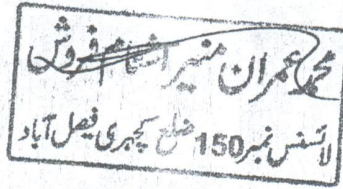 محمد عمران منیر اسٹام فروش
لائسنس نمبر 150 ضلع کچہری فیصل آباد